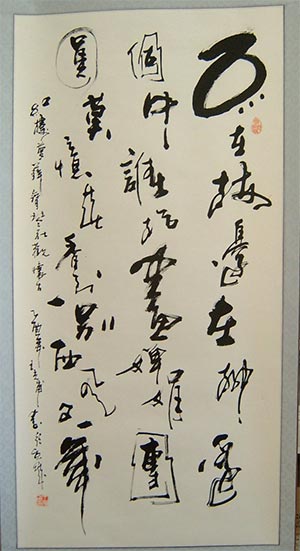 不在梅邊在柳邊
個中誰拾畫嬋娟團
圓莫憶春香到別西風又一年
紅樓夢薛寶琴觀懷古 乙酉年 書於